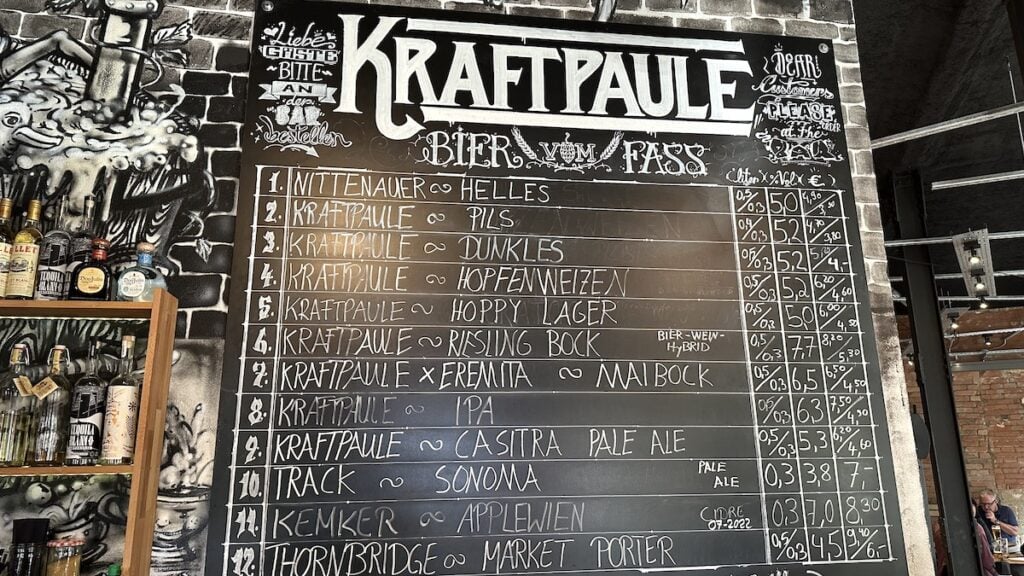 Liebe
Gäste
BITTE
AN
der
BAR
bestellen
KRAFTPAULE
DEAR
Customers
PLEASE
ORDER
at the
BIER VOM FASS
(Liter x %Alc x €)
1. NITTENAUER ~ HELLES 0,5/0,3 5,0
2. KRAFTPAULE ~ PILS 0,4/0,3 5,2
3. KRAFTPAULE ~ DUNKLES 0,5/0,3 5,2
4. KRAFTPAULE ~ HOPFENWEIZEN 0,5/0,3 5,2
5. KRAFTPAULE ~ HOPPY LAGER 0,5/0,3 5,0
6. KRAFTPAULE ~ RIESLING BOCK BIER-WEIN-HYBRID 0,5/0,3 7,7 8,20/5,30
7. KRAFTPAULE x EREMITA ~ MAIBOCK 0,5/0,3 6,5 6,50/4,50
8. KRAFTPAULE ~ IPA 0,5/0,3 6,3 7,50/4,90
9. KRAFTPAULE ~ CASITRA PALE ALE 0,5/0,3 5,3 6,20/4,60
10. TRACK ~ SONOMA PALE ALE 0,3 3,8 7,-
11. KEMKER ~ APPLEWIEN CIDRE 07-2022 0,3 7,0 8,30
12. THORNBRIDGE ~ MARKET PORTER 0,5/0,3 4,5 9,40/6,-